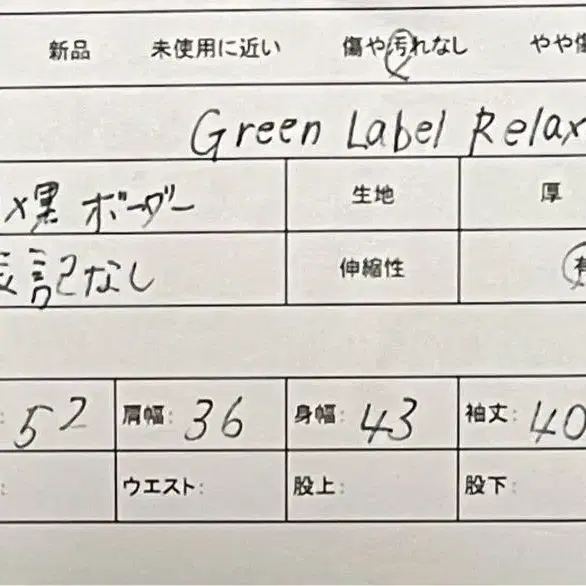 新品 未使用に近い 傷や汚れなし やや傷
Green Label Relax
×黒 ボーダー 生地 厚
表記なし 伸縮性 有
: 52 肩幅: 36 身幅: 43 袖丈: 40
: ウエスト: 股上: 股下: